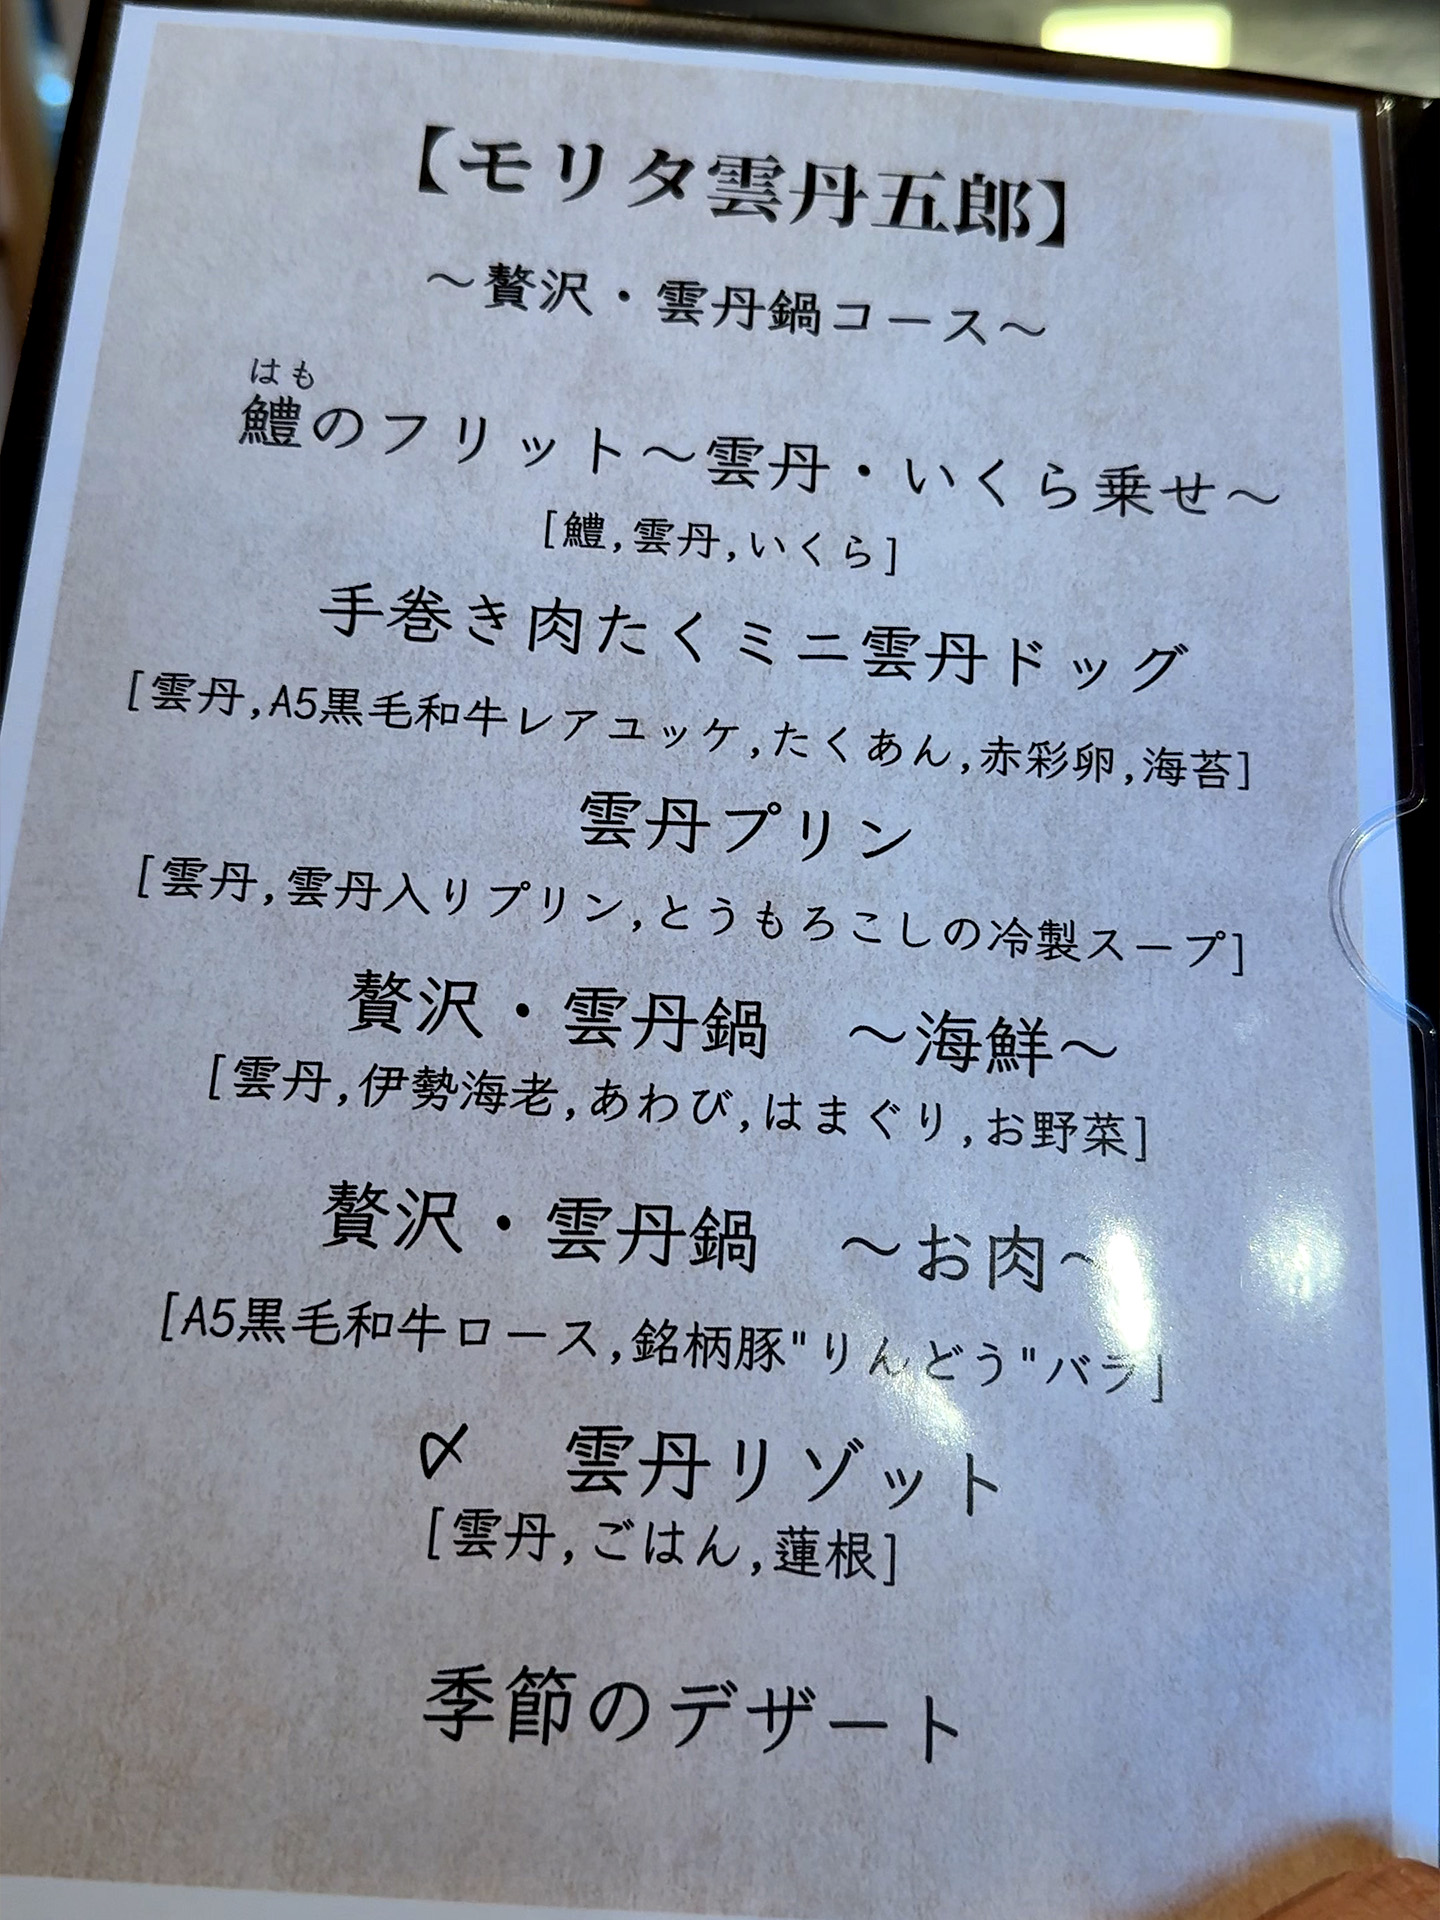 【モリタ雲丹五郎】
〜贅沢・雲丹鍋コース〜
はも
鱧のフリット〜雲丹・いくら乗せ〜
[鱧,雲丹,いくら]
手巻き肉たくミニ雲丹ドッグ
[雲丹,A5黒毛和牛レアユッケ,たくあん,赤彩卵,海苔]
雲丹プリン
[雲丹,雲丹入りプリン,とうもろこしの冷製スープ]
贅沢・雲丹鍋　〜海鮮〜
[雲丹,伊勢海老,あわび,はまぐり,お野菜]
贅沢・雲丹鍋　〜お肉〜
[A5黒毛和牛ロース,銘柄豚"りんどう"バラ]
〆　雲丹リゾット
[雲丹,ごはん,蓮根]
季節のデザート